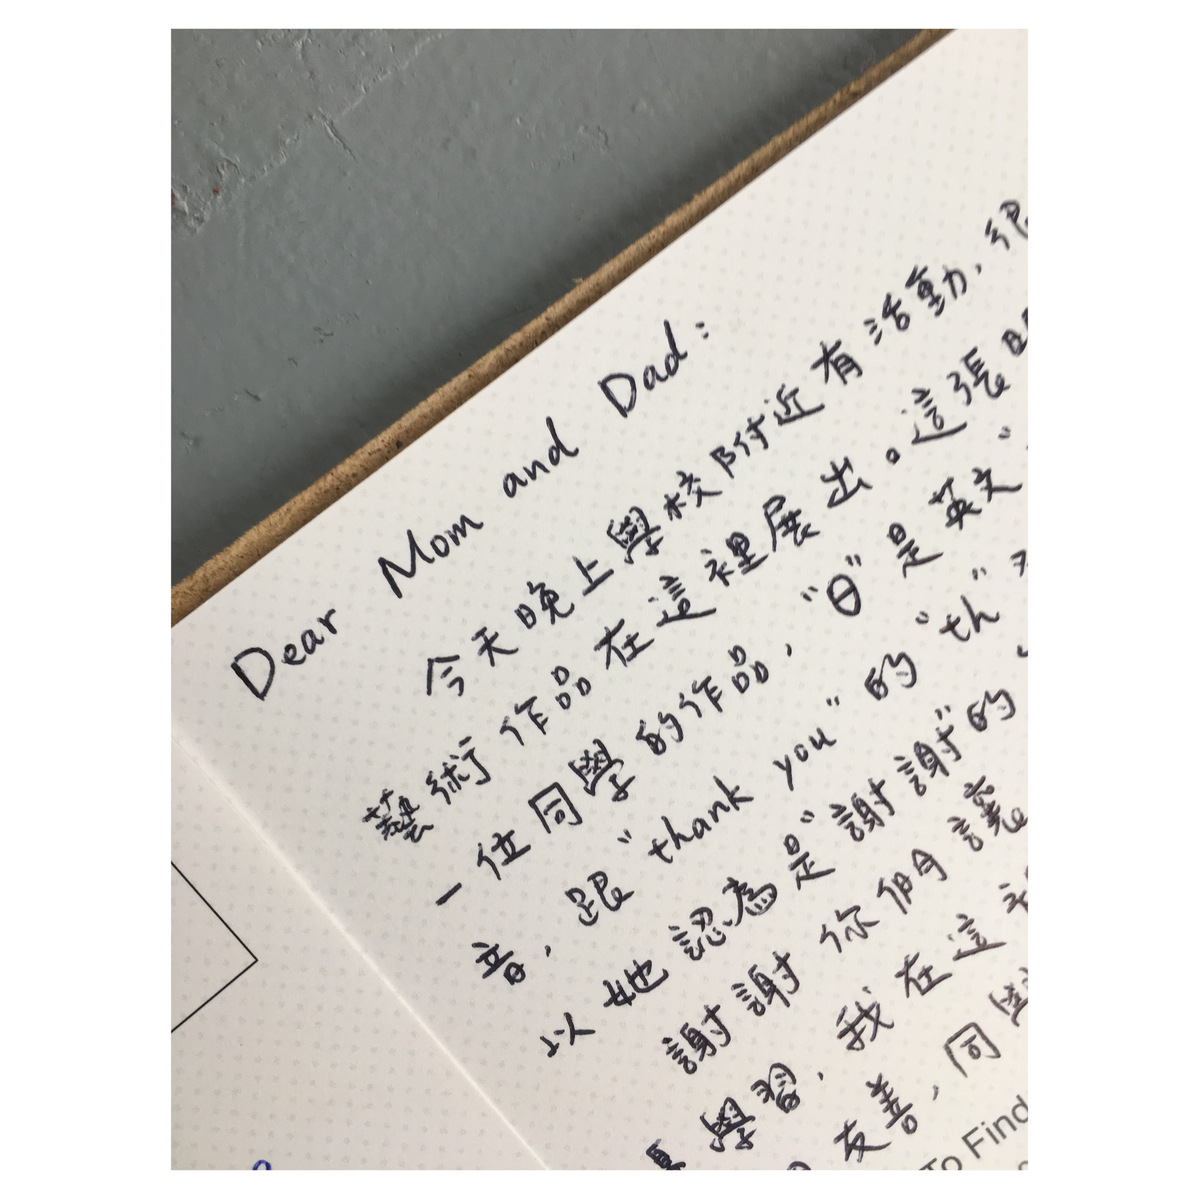 Dear Mom and Dad:
今天晚上學校附近有活動，很
藝術作品在這裡展出。這張
一位同學的作品，"θ"是英文"
音，跟"thank you"的"th"
以她認為是"謝謝"的
謝謝你們今讓
學習，我在這
友善，同學
To Find